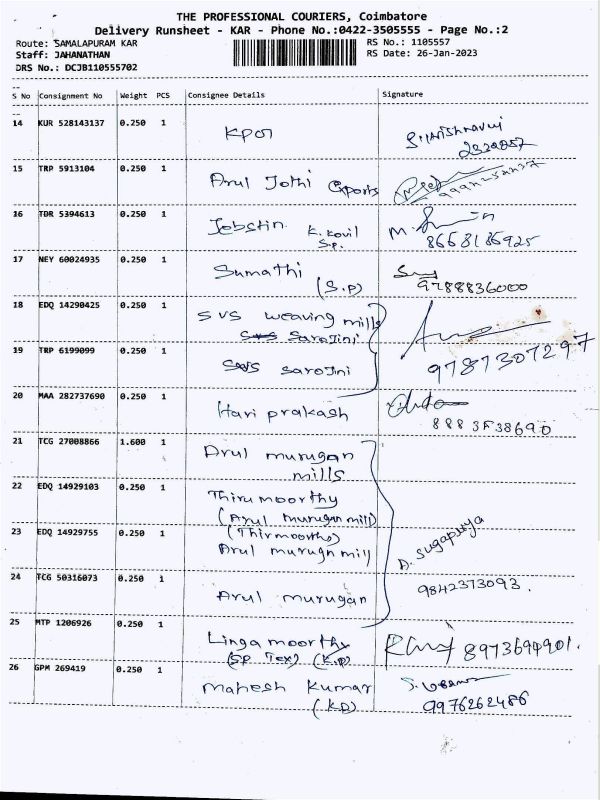 THE PROFESSIONAL COURIERS, Coimbatore
Delivery Runsheet - KAR - Phone No.:0422-3505555 - Page No.:2
Route: SAMALAPURAM KAR RS No.: 1105557
Staff: JAHANATHAN RS Date: 26-Jan-2023
DRS No.: DCJB110555702
S No Consignment No Weight PCS Consignee Details Signature
14 KUR 528143137 0.250 1
15 TRP 5913104 0.250 1 Arul Jothi Exports
16 TDR 5394613 0.250 1 Jobstin K. Kovil
S.P. 8668186925
17 NEY 60024935 0.250 1 Sumathi
(S.P) 9788836000
18 EDQ 14290425 0.250 1 SVS weaving mills
Sarojini
19 TRP 6199099 0.250 1 SVS Sarojini 9787307297
20 MAA 282737690 0.250 1 Hari prakash
21 TCG 27008866 1.600 1 Arul murugan
mills
22 EDQ 14929103 0.250 1 Thirumoorthy
(Arul Murugan mill)
23 EDQ 14929755 0.250 1 (Thirmoorthy)
Arul murugn mill D. Sugapriya
24 TCG 50316073 0.250 1 Arul murugan 9842373093.
25 MTP 1206926 0.250 1 Linga moorthy
(SP Tex) (K.P) 8973694901.
26 GPM 269419 0.250 1 Mahesh Kumar
(KP) 9976262486